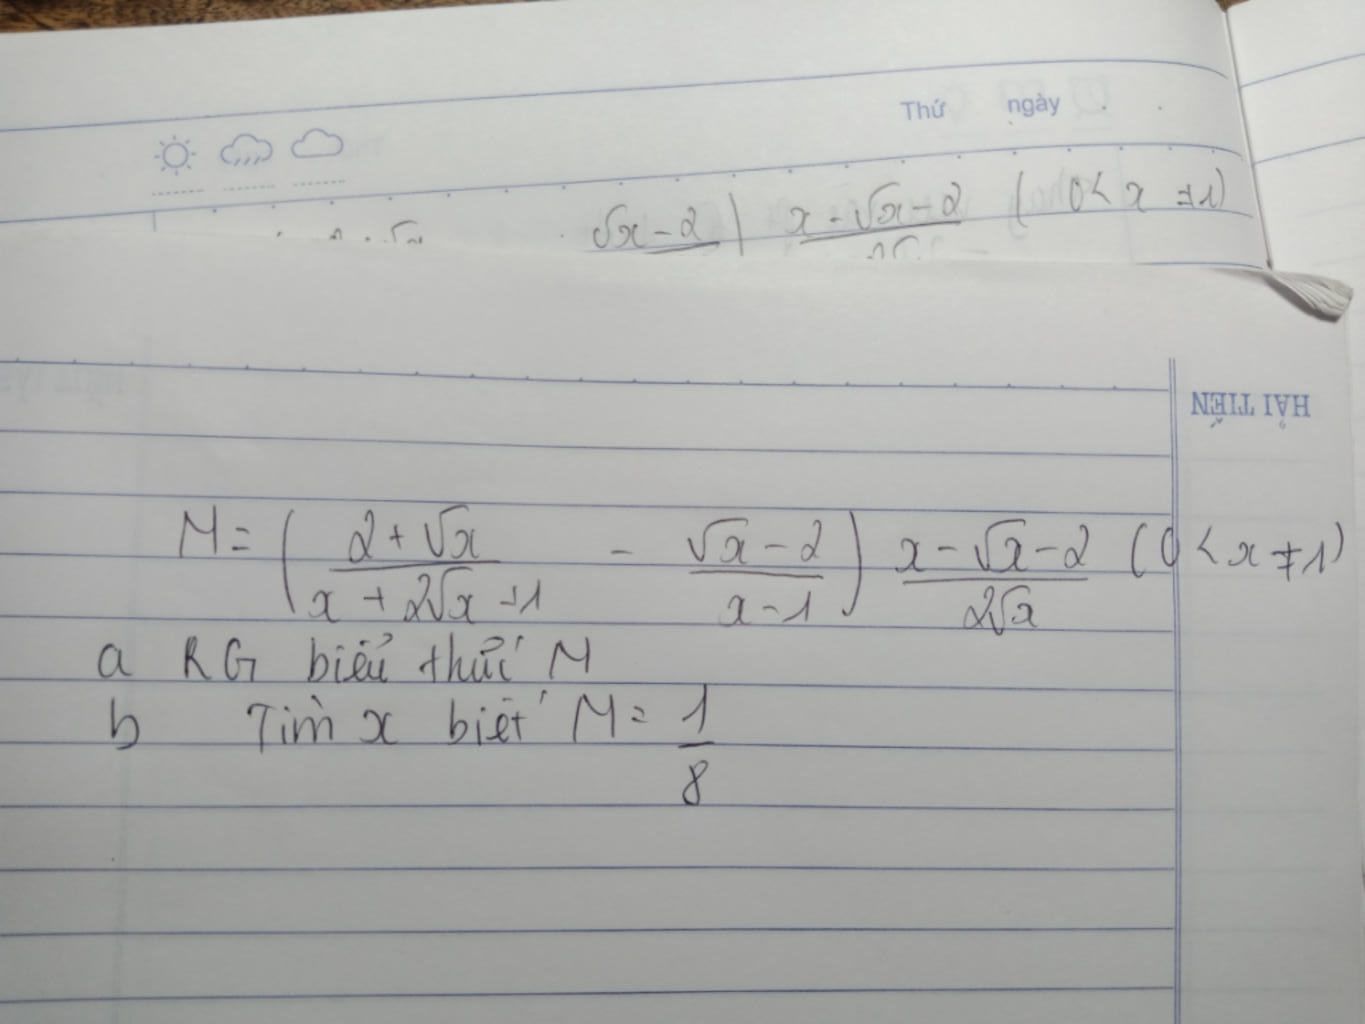 Thứ ngày
√x-2) x-√x-2 (0<x≠1)
HẢI TIẾN
M = (2+√x/x+2√x+1 - √x-2/x-1) x-√x-2/2√x (0<x≠1)
a RG biểu thức M
b Tìm x biết M = 1/8